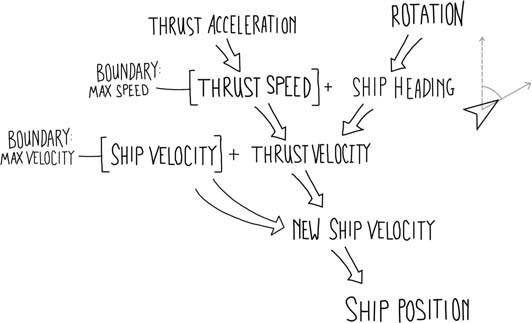 THRUST ACCELERATION
ROTATION
BOUNDARY:
MAX SPEED
[THRUST SPEED] + SHIP HEADING
BOUNDARY:
MAX VELOCITY
[SHIP VELOCITY] + THRUST VELOCITY
NEW SHIP VELOCITY
SHIP POSITION